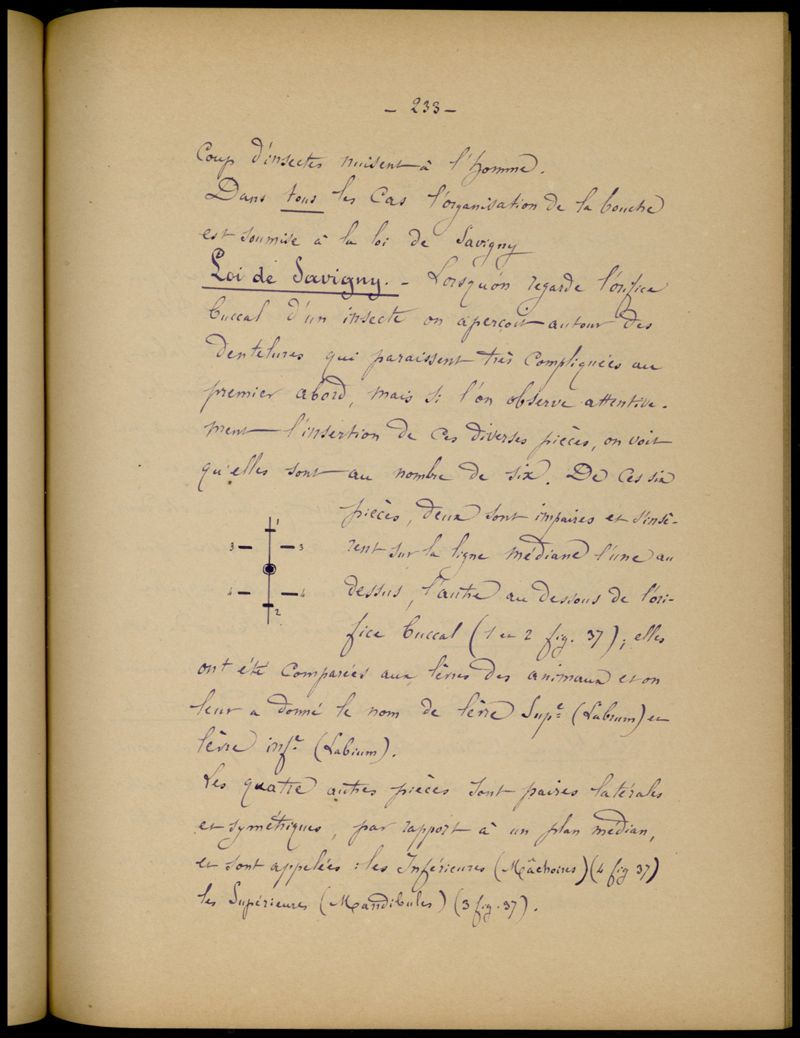 — 233 —
Coup d'insectes nuisent à l'homme.
Dans tous les cas l'organisation de la bouche
est soumise à la loi de Savigny
Loi de Savigny. - Lorsqu'on regarde l'orifice
buccal d'un insecte on aperçoit autour des
dentelures qui paraissent très compliquées au
premier abord, mais si l'on observe attentive-
ment l'insertion de ces diverses pièces, on voit
qu'elles sont au nombre de six. De ces six
pièces, deux sont impaires et s'insè-
rent sur la ligne médiane l'une au
dessus, l'autre au dessous de l'ori-
fice buccal (1 et 2 fig. 37); elles
1
3 3
4 4
2
ont été comparées aux lèvres des animaux et on
leur a donné le nom de lèvre Supre (Labrum) et
lèvre infre (Labium).
Les quatre autres pièces sont paires latérales
et symétriques, par rapport à un plan médian,
et sont appelées : les Inférieures (Mâchoires) (4 fig 37)
les Supérieures (Mandibules) (3 fig. 37).